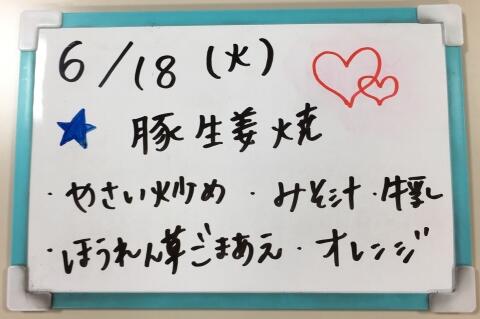 6/18 (火)
★ 豚生姜焼
・やさい炒め ・みそ汁 ・牛乳
・ほうれん草ごまあえ ・オレンジ